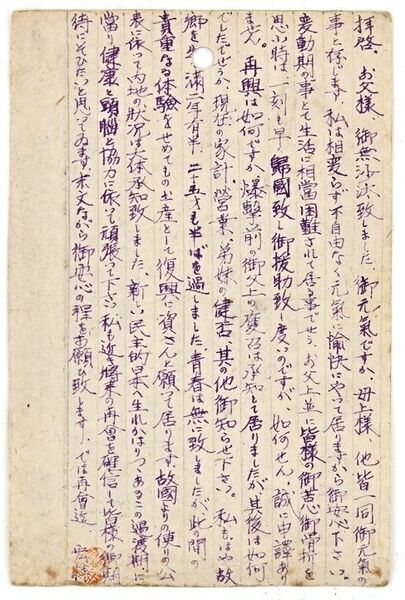 拝啓 お父様 御無沙汰致しました 御元氣ですか 母上様 他皆一同御元氣の
事と存じます。私は相変らず不自由なく元氣に愉快にやって居りますから御安心下さい。
変動期の事とて生活に相當困難されて居る事でせう、お父上並に皆様の御苦心御骨折を
思ふ時は、一刻も早く歸國致し御援助致し度いのですが、如何せん、誠に申譯あり
ません。再興は如何ですか 爆撃前の御父上の 承知して居りましたが其後は如何
でしたでせうか、現在の家計、營業、弟妹の健否、其の他御知らせ下さい。私もはや故
郷を出て満二年有半 二十五才も半ばを過しました、青春は無に致しましたが此の間の
貴重なる体験をせめてもの土産として復興に資さんと願って居ります、故國よりの便りの公
表に依って内地の狀況は大体承知致しました、新しい民主的日本へ生れかはりつゝあるこの過渡期に
當り 健康と頭腦と協力に依って頑張って下さい 私も近き將来の再會を確信して皆様の御期
待にそひたいと思ってゐます 末文ながら御安心の程をお願ひ致します、では再會迄